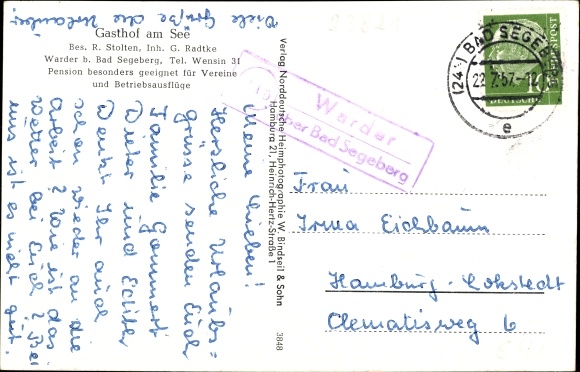 Viele Grüße die Urlauber.
Gasthof am See
Bes. R. Stolten, Inh. G. Radtke
Warder b. Bad Segeberg, Tel. Wensin 31
Pension besonders geeignet für Vereine
und Betriebsausflüge
Meine Lieben!
Herzliche Urlaubs=
grüsse senden Euch
Familie Gommert
Dieter und Echter
Denkt Ihr auch
schon wieder an die
Arbeit? Wie ist das
Wetter bei Euch? Bei
uns ist es nicht gut.
Verlag Norddeutsche Heimphotographie W. Bindseil & Sohn
Hamburg 21, Heinrich-Hertz-Straße 1
3848
Warder
über Bad Segeberg
(24b) BAD SEGEBERG
22.7.57.-12
e
10
DEUTSCHE BUNDESPOST
Frau
Irma Eichbaum
Hamburg-Lokstedt
Clematisweg 6